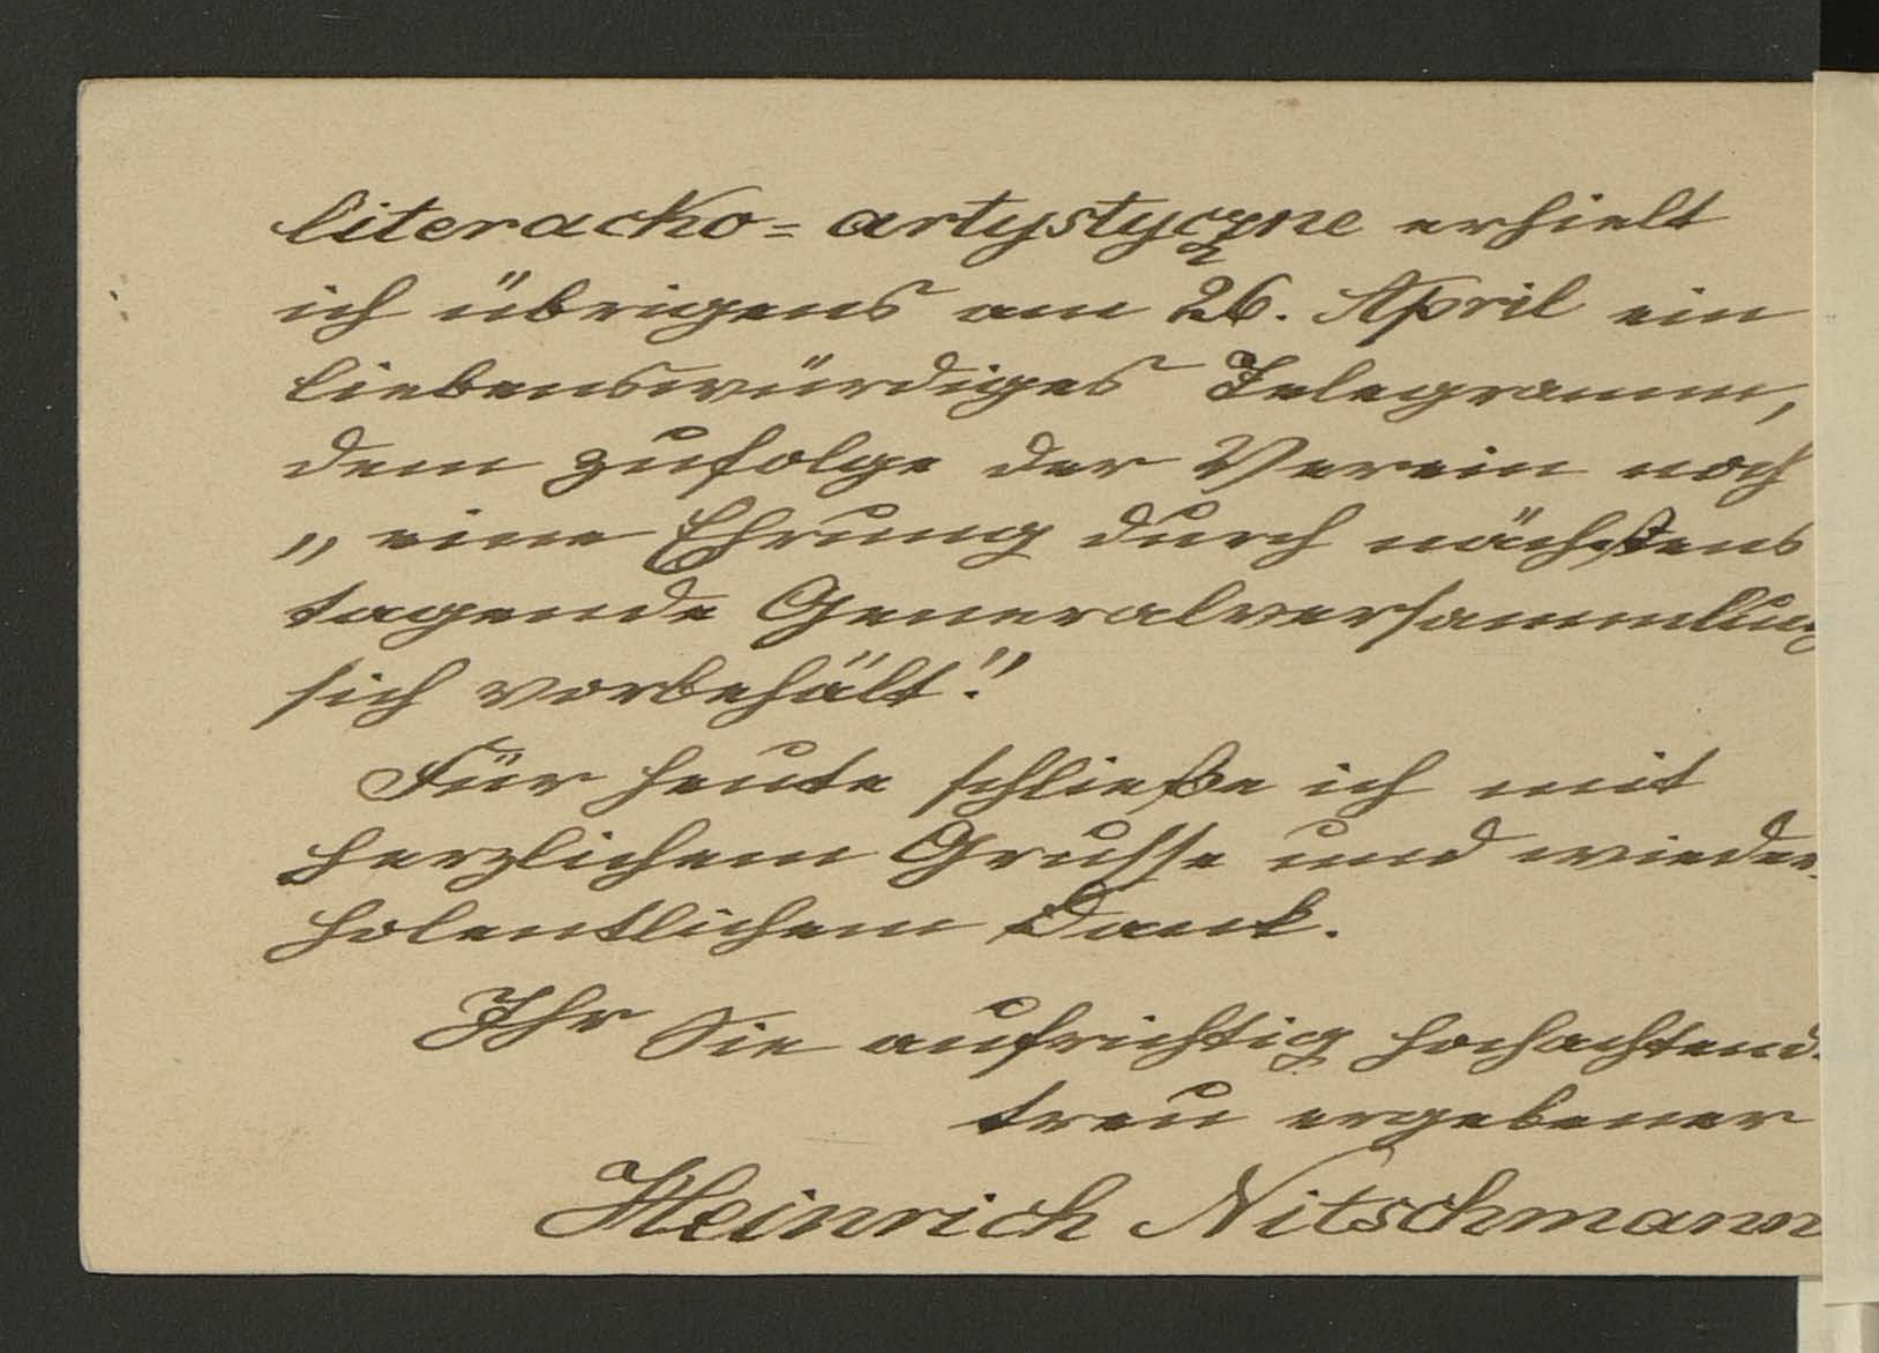 literacko= artystyczne erhielt
ich übrigens am 26. April ein
liebenswürdiges Telegramm,
dem zufolge der Verein noch
„eine Ehrung durch nächstens
tagende Generalversammlung
sich vorbehält."
Für heute schließe ich mit
herzlichem Grusse und wieder-
holentlichem Dank.
Ihr Sie aufrichtig hochachtend.
treu ergebener
Heinrich Nitschmann